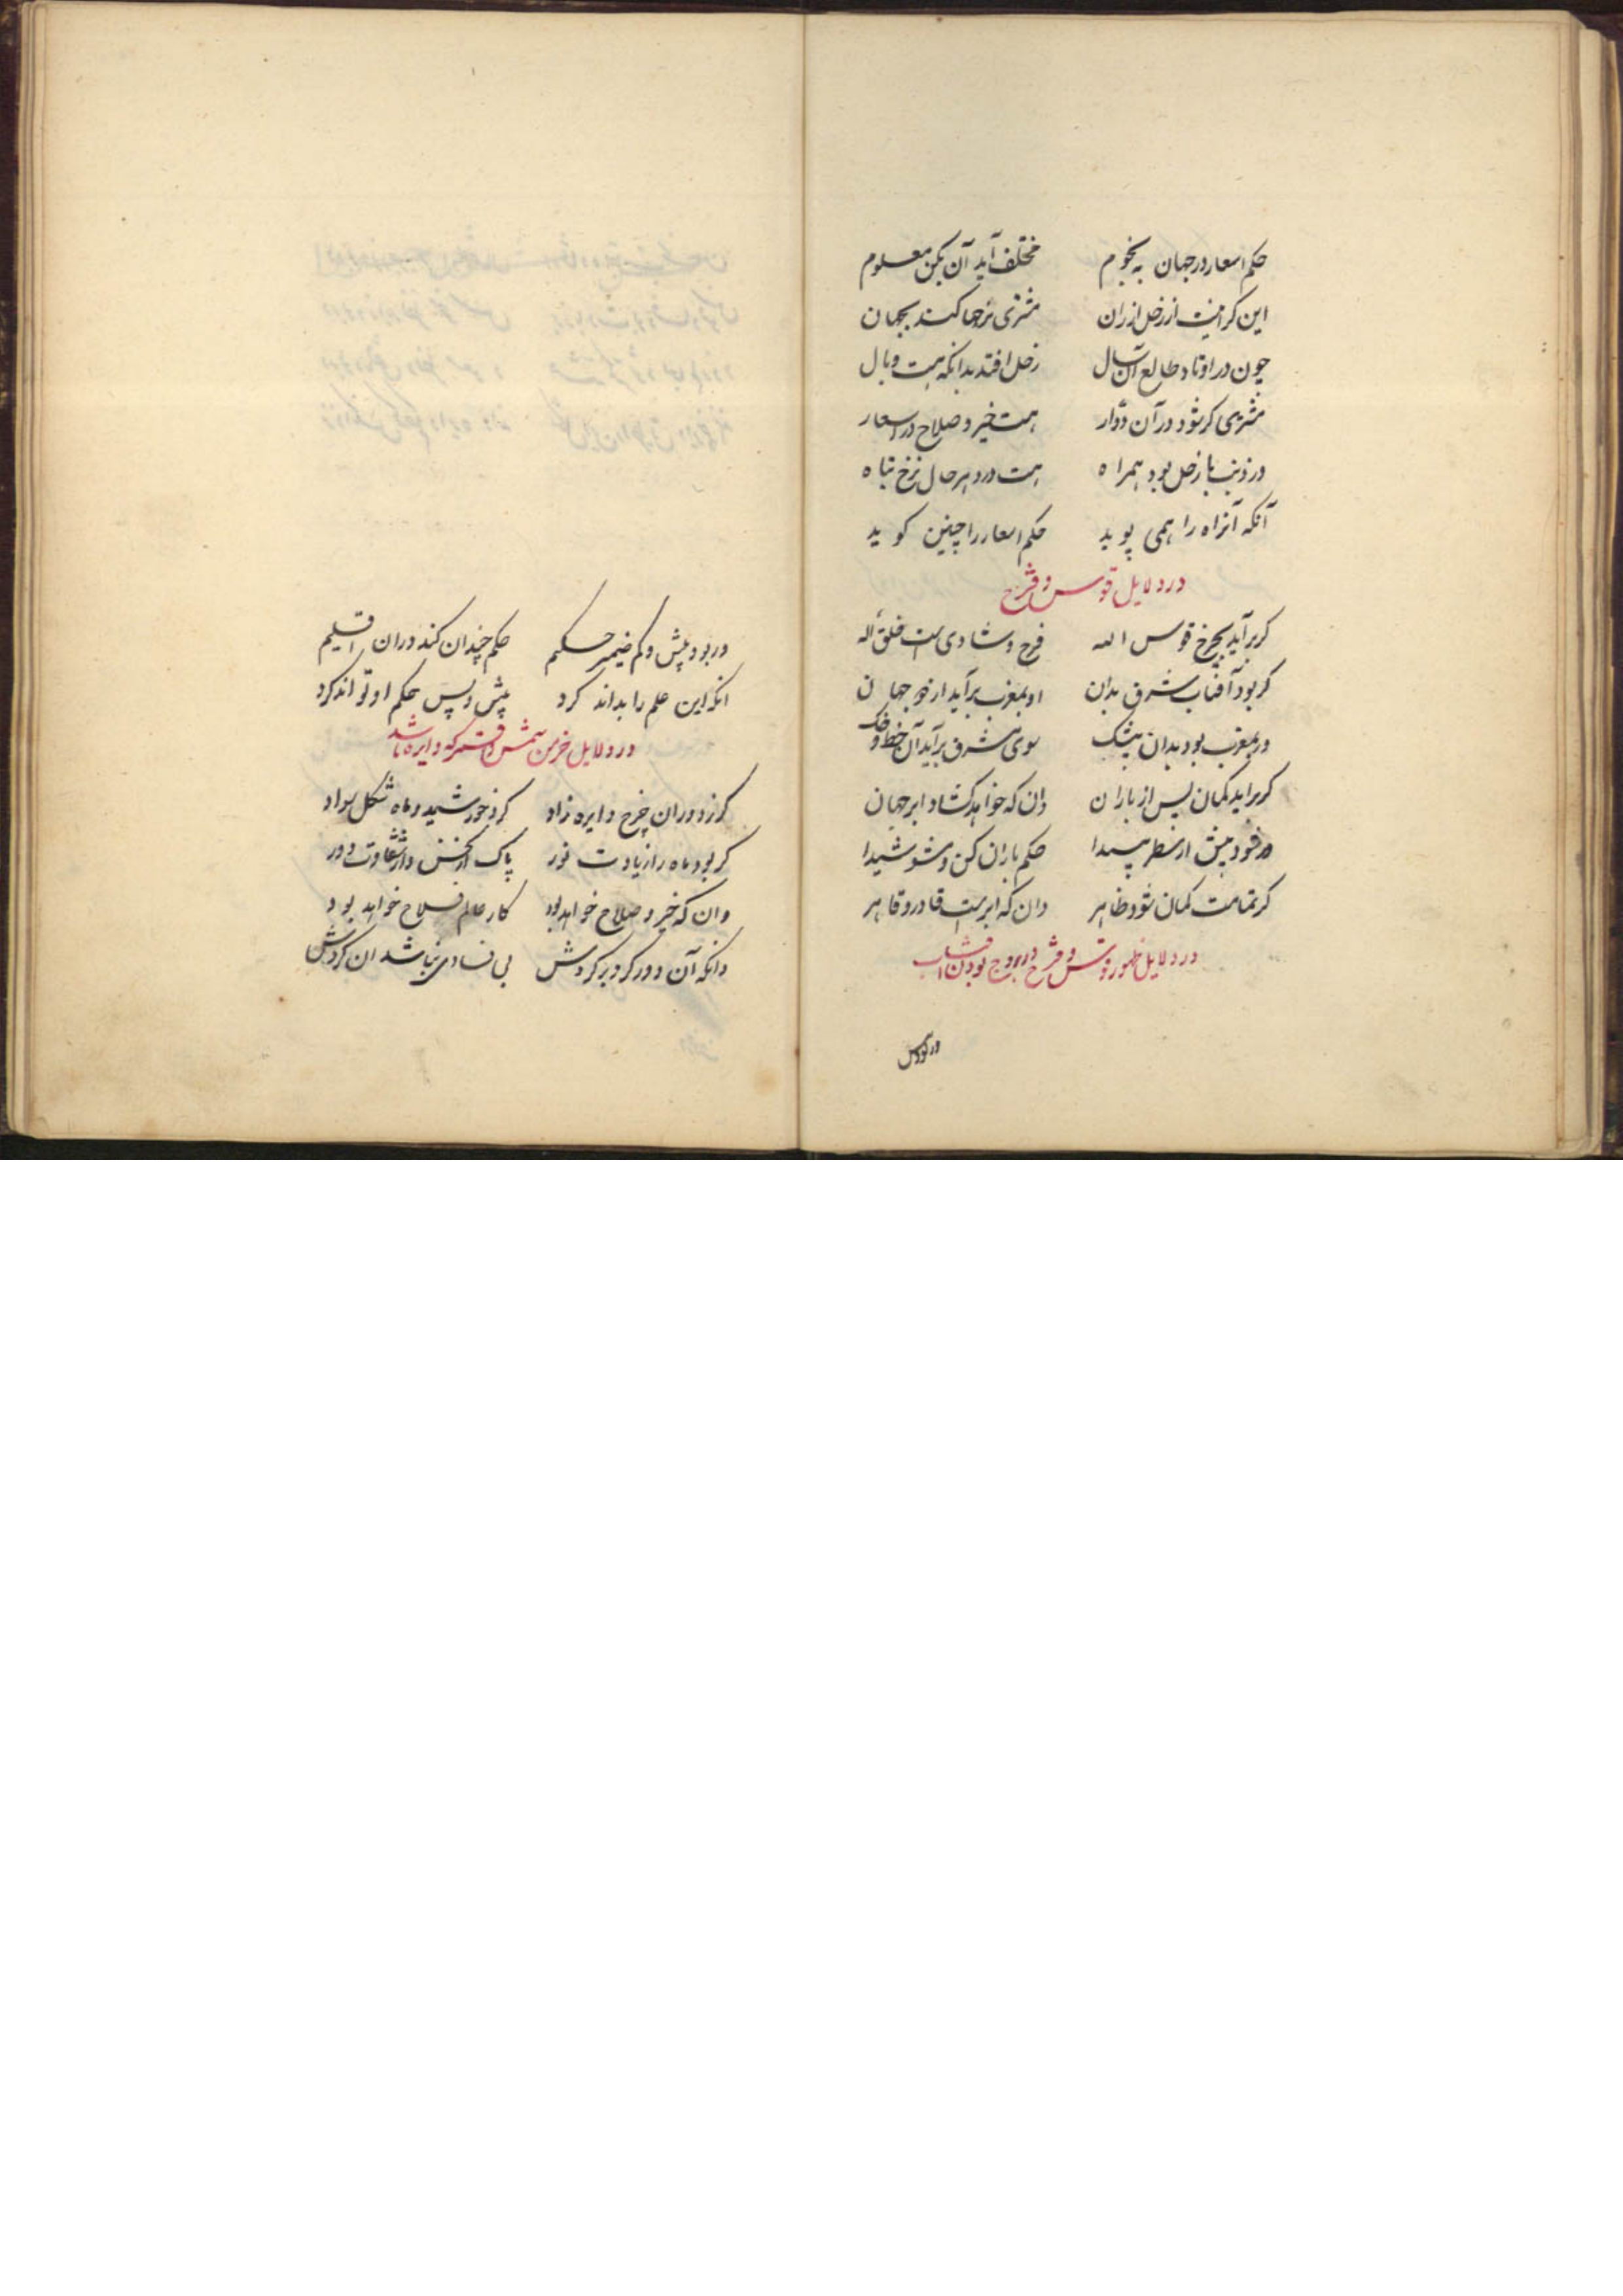 حکم اسعار در جهان به نجوم مختلف آید آن بکن معلوم
این کرانیست از زحل ارزان مشتری نرخها کند بجهان
چون در اوتاد طالع آن سال زحل افتد بدانکه هست وبال
مشتری کر شود در آن دوار هست خیر و صلاح در اسعار
ور ذنب با زحل بود همراه هست در دهر حال نرخ تباه
آنکه آنراه را همی پوید حکم اسعار را چنین کوید
در دلایل قوس و قزح
کر برآید بچرخ قوس اله فرح و شادی است خلق اله
کر بود آفتاب شرق بدان او بمغرب برآید از خور جهان
ور بمغرب بود بدان بیشک سوی مشرق برآید آن خط و حک
کر براید کمان پس از باران دان که خواهد کشاد ابر جهان
ور فتد پیش از مطر پیدا حکم باران کن و مشو شیدا
کر تمامت کمان شود ظاهر دان که ابر است قادر و قاهر
در دلایل ظهور قوس و قزح در بروج بودن آفتاب
ور بود بیش و کم ضمیر حکیم حکم چندان کند دران اقلیم
انکه این علم را بداند کرد پیش و پس حکم او تواند کرد
در دلایل خرمن شمس و قمر که دایره باشد
کر ز دوران چرخ دایره زاد کرد خورشید و ماه شکل سواد
کر بود ماه را زیادت نور پاک از نحس و از شقاوت دور
وان که خیر و صلاح خواهد بود کار عالم فلاح خواهد بود
دانکه آن دور کرد بر کردش بی فسادی نباشد ان کردش